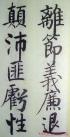 離節義廉退
顛沛匪虧性